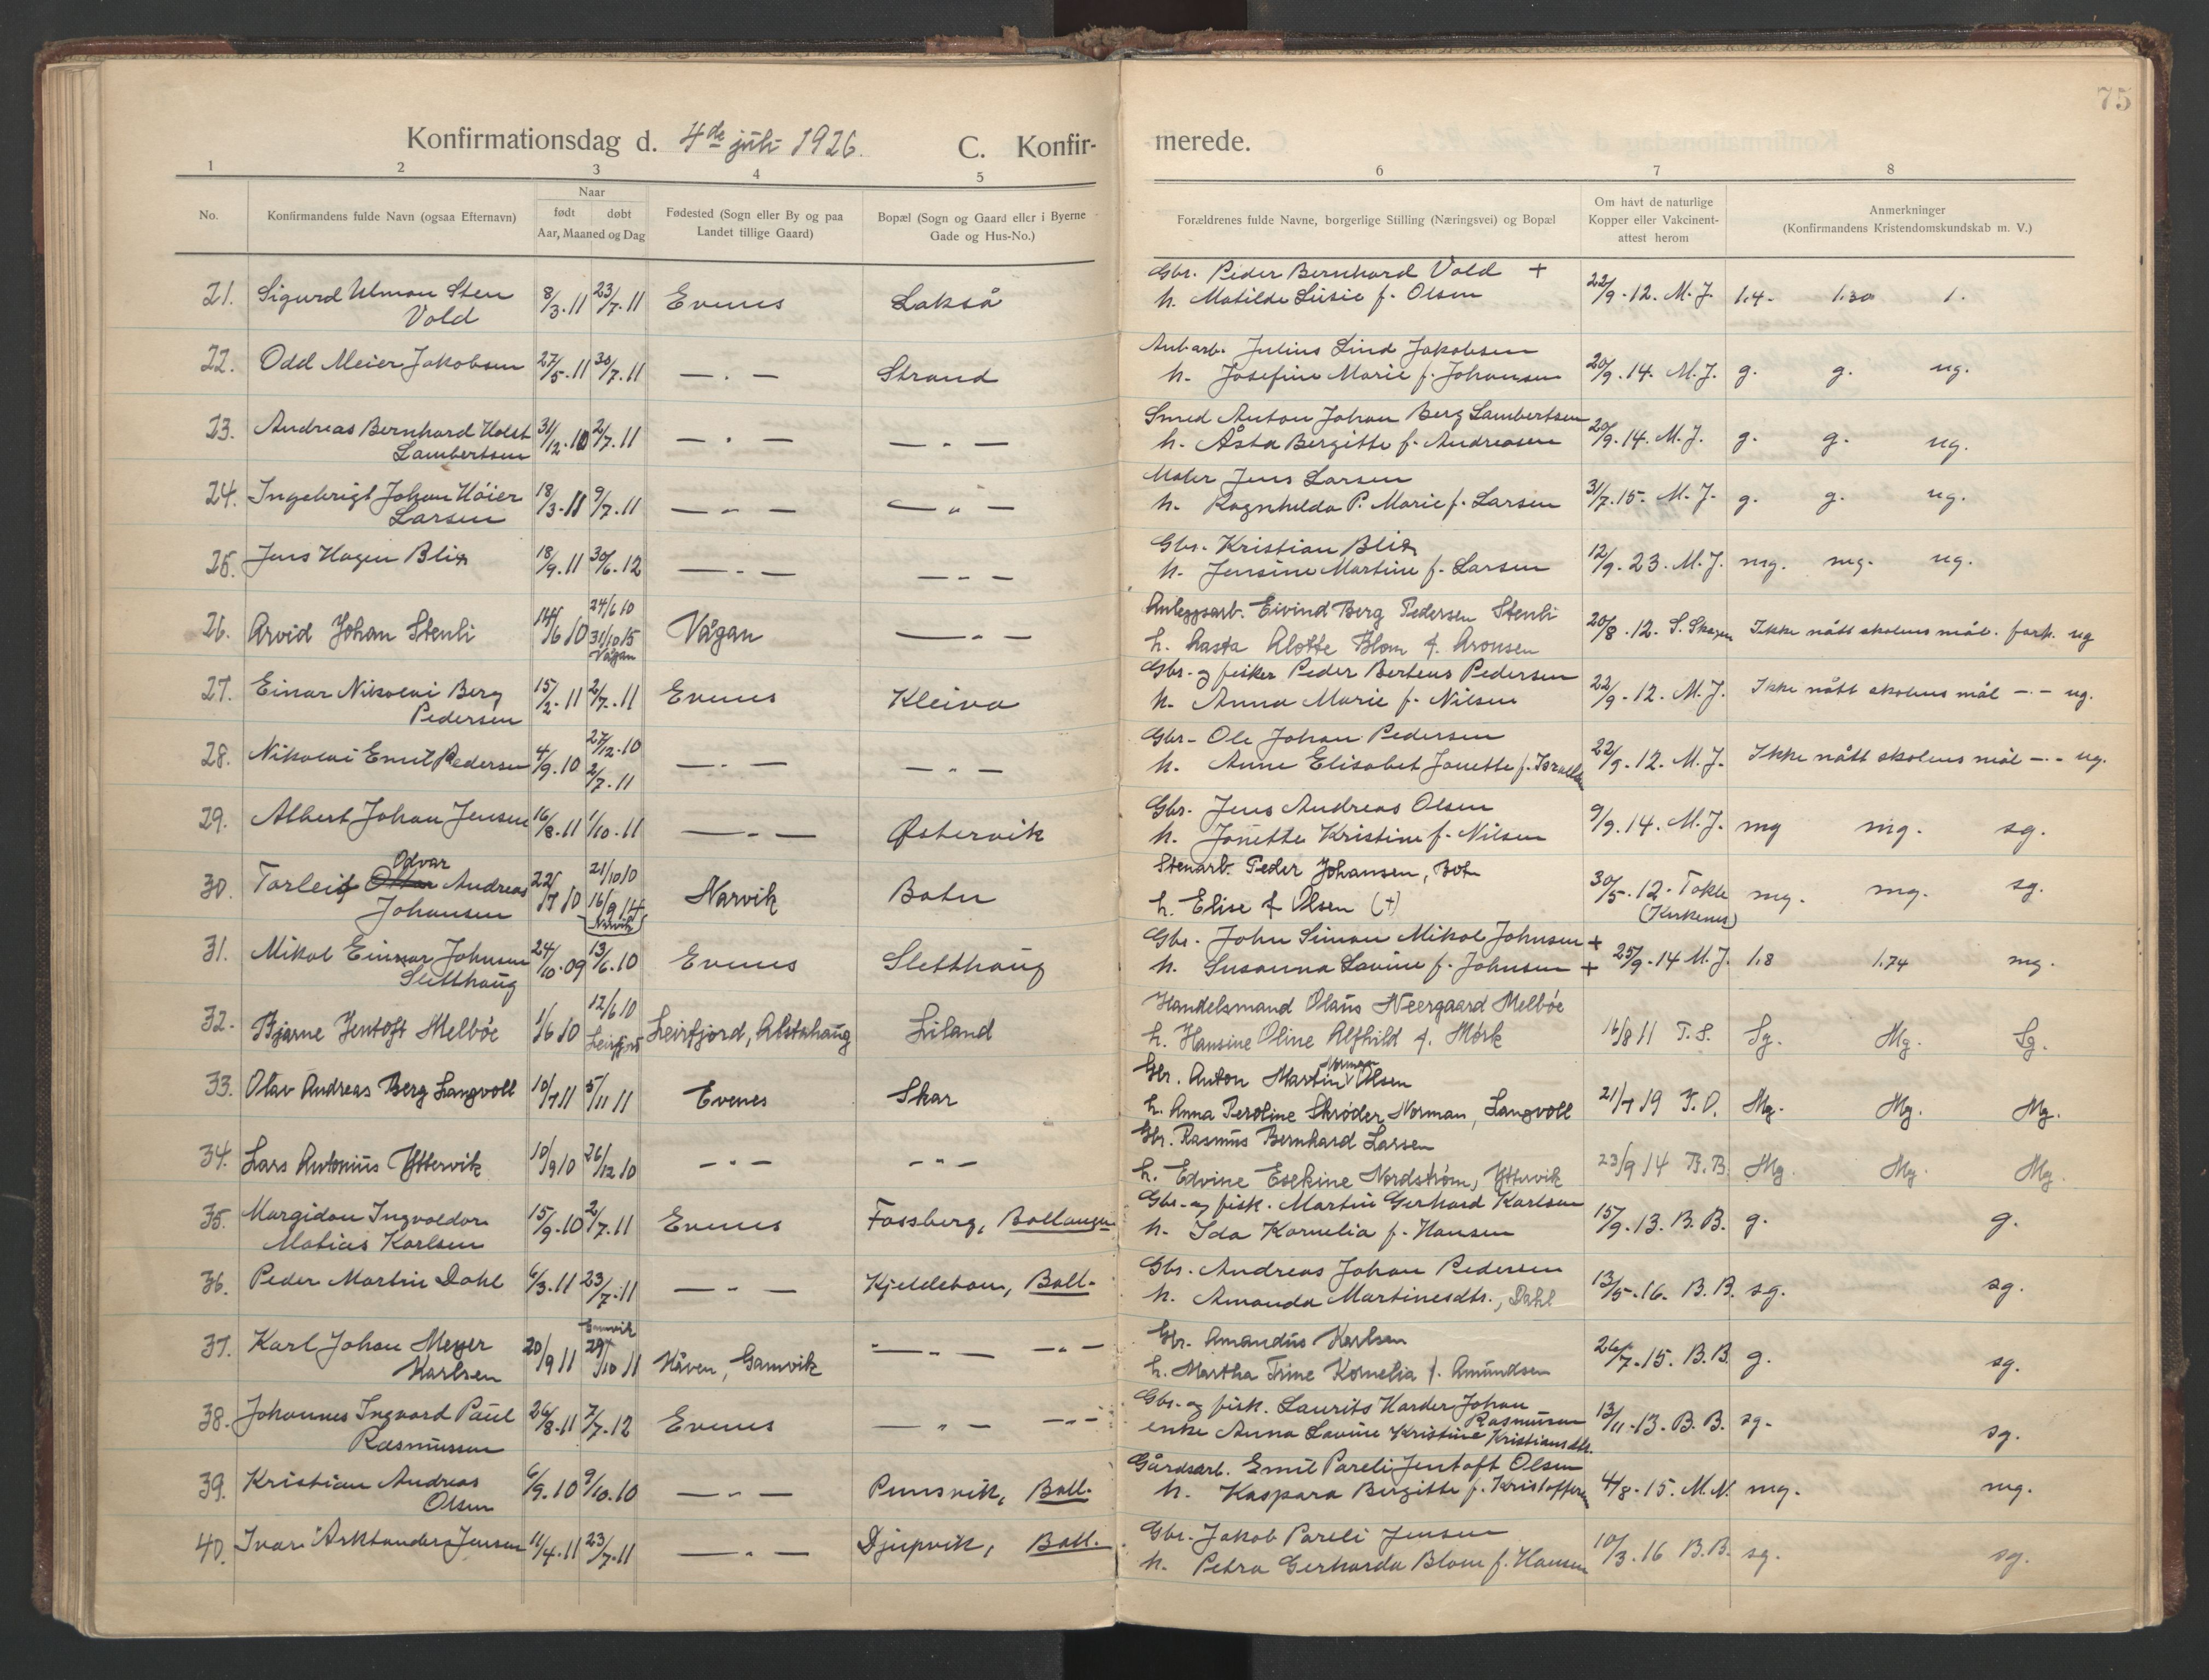 75
Konfirmationsdag d. 4de juli 1926. C. Konfir-merede.
1 2 3 4 5 6 7 8
No. Konfirmandens fulde Navn (ogsaa Efternavn) Naar født døbt Aar, Maaned og Dag Fødested (Sogn eller By og paa Landet tillige Gaard) Bopæl (Sogn og Gaard eller i Byerne Gade og Hus-No.) Forældrenes fulde Navne, borgerlige Stilling (Næringsvei) og Bopæl Om havt de naturlige Kopper eller Vakcinent-attest herom Anmerkninger (Konfirmandens Kristendomskundskab m. V.)
21. Sigurd Ulman Sten 8/3.11 23/7.11 Evenes Lakså Gbr. Peder Bernhard Vold + 22/9.12. M.J. 1.4. 1.30 1.
Vold h. Matilde Lusie f. Olsen
22. Odd Meier Jakobsen 27/5.11 30/7.11 — . — Strand Anl.arb. Julius Lind Jakobsen 20/9.14. M.J. g. g. ug.
h. Josefine Marie f. Johansen
23. Andreas Bernhard Holst 31/12.10 2/7.11 — . — — . — Smed Anton Johan Berg Lambertsen 20/9.14. M.J. g. g. ug.
Lambertsen h. Åsta Bergitte f. Andreasen
24. Ingebrigt Johan Höier 18/3.11 9/7.11 — " — — " — Maler Jens Larsen 31/7.15. M.J. g. g. ug.
Larsen h. Ragnhilda P. Marie f. Larsen
25. Jens Hagen Blix 18/9.11 30/6.12 — . — — . — Gbr. Kristian Blix 12/9.23. M.J. mg. mg. ug.
h. Jensine Martine f. Larsen
26. Arvid Johan Stenli 14/6 10 24/6 10 31/10 15 Vågan Vågan — . — Anleggsarb. Eivind Berg Pedersen Stenli 20/8.12. S. Skagen Ikke nått skolens mål. fork. ug
h. Aasta Alotte Blom f. Aronsen
27. Einar Nikolai Berg 15/2.11 2/7.11 Evenes Kleiva Gbr. og fisker Peder Berteus Pedersen 22/9.12. M.J. Ikke nått skolens mål — . — ug.
Pedersen h. Anna Marie f. Nilsen
28. Nikolai Emil Pedersen 4/9.10 27/12.10 2/7.11 — . — — " — Gbr. Ole Johan Pedersen 22/9.12. M.J. Ikke nått skolens mål — . — ug.
h. Anne Elisabet Jonette f.
29. Albert Johan Jensen 16/8.11 1/10.11 — . — Østervik Gbr. Jens Andreas Olsen 9/9.14. M.J. mg mg. sg.
h. Jonette Kristine f. Nilsen
30. Torleif Odvar Andreas 22/7 10 21/10 10 16/9 14 Narvik Narvik Botn Stenarb. Peder Johansen, Botn 30/5.12. Tokle (Kirkenes) mg. mg. sg.
Johansen h. Elise f Olsen (+)
31. Mikal Einar Johnsen 24/10.09 13/6.10 Evenes Sletthaug Gbr. John Simon Mikal Johnsen + 25/9.14 M.J. 1.8 1.74 mg.
Sletthaug h. Susanna Lovine f. Johnsen +
32. Bjarne Jentoft Melböe 1/6 10 12/6 10 Leirfjord Leirfjord, Alstahaug Liland Handelsmand Olaus Neergaard Melböe 16/8 11 T.S. Sg. Mg. Sg.
h. Hansine Oline Alfhild f. Mörk
33. Olav Andreas Berg Langvoll 10/7 11 5/11 11 Evenes Skar Gbr. Anton Martin Norman Olsen 21/7 19 T.O. Mg. Mg. Mg.
h. Anna Peroline Skrøder Norman, Langvoll
34. Lars Antonius Yttervik 10/9 10 26/12 10 — " — — " — Gbr. Rasmus Bernhard Larsen 23/9 14 B.B. Mg. Mg. Mg.
h. Edvine Esekine Nordstrøm, Yttervik
35. Margidon Ingvoldor 15/9.10 2/7.11 Evenes Fossberg, Ballangen Gbr. og fisk. Martin Gerhard Karlsen 15/9.13. B.B. g. g.
Matias Karlsen h. Ida Kornelia f. Hansen
36. Peder Martin Dahl 6/3.11 23/7.11 — " — Kjeldebotn, Ball. Gbr. Andreas Johan Pedersen 13/5.16. B.B. sg. sg.
h. Amanda Martinesdtr., Dahl
37. Karl Johan Meyer 20/9 11 Gamvik 29/10 11 Håven, Gamvik — . — — . — Gbr. Amandus Karlsen 26/7.15. B.B. g. sg.
Karlsen h. Martha Trine Kornelia f. Amundsen
38. Johannes Ingvard Paul 26/8.11 7/7.12 Evenes — " — — . — Gbr. og fisk. Laurits Harder Johan Rasmussen 13/11.13. B.B. sg. sg.
Rasmussen enke Anna Lovine Kristine Kristiansdtr.
39. Kristian Andreas 6/9.10 9/10.10 — " — Punsvik, Ball. Gårdsarb. Emil Pareli Jentoft Olsen 4/8.15. M.N. mg. mg.
Olsen h. Kaspara Bergitte f. Kristoffersen
40. Ivar Arktander Jensen 11/4.11 23/7.11 — " — Djupvik, Ball. Gbr. Jakob Pareli Jensen 10/3.16 B.B. sg. sg.
h. Petra Gerharda Blom f. Hansen